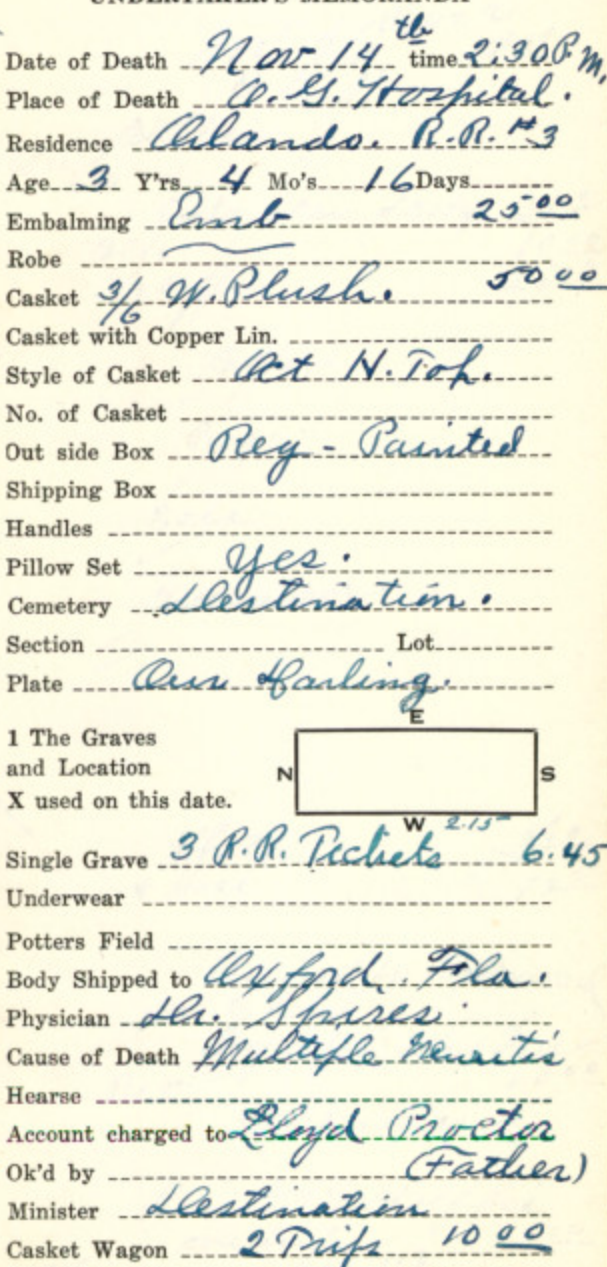 UNDERTAKER'S MEMORANDA
Date of Death Nov 14th time 2:30 P.M.
Place of Death O.G. Hospital.
Residence Orlando. R.R. #3
Age 3 Y'rs 4 Mo's 16 Days
Embalming Emb 25 00
Robe
Casket 3/6 W. Plush. 50 00
Casket with Copper Lin.
Style of Casket Oct N. Top.
No. of Casket
Out side Box Reg - Painted
Shipping Box
Handles
Pillow Set Yes.
Cemetery Destination.
Section Lot
Plate Our Darling.
E
1 The Graves
and Location
X used on this date.
N S
W 2.15
Single Grave 3 R.R. Tickets 6.45
Underwear
Potters Field
Body Shipped to Oxford, Fla.
Physician Dr. Spires.
Cause of Death Multiple Neuritis
Hearse
Account charged to Lloyd Proctor
Ok'd by (Father)
Minister Destination
Casket Wagon 2 Trips 10 00